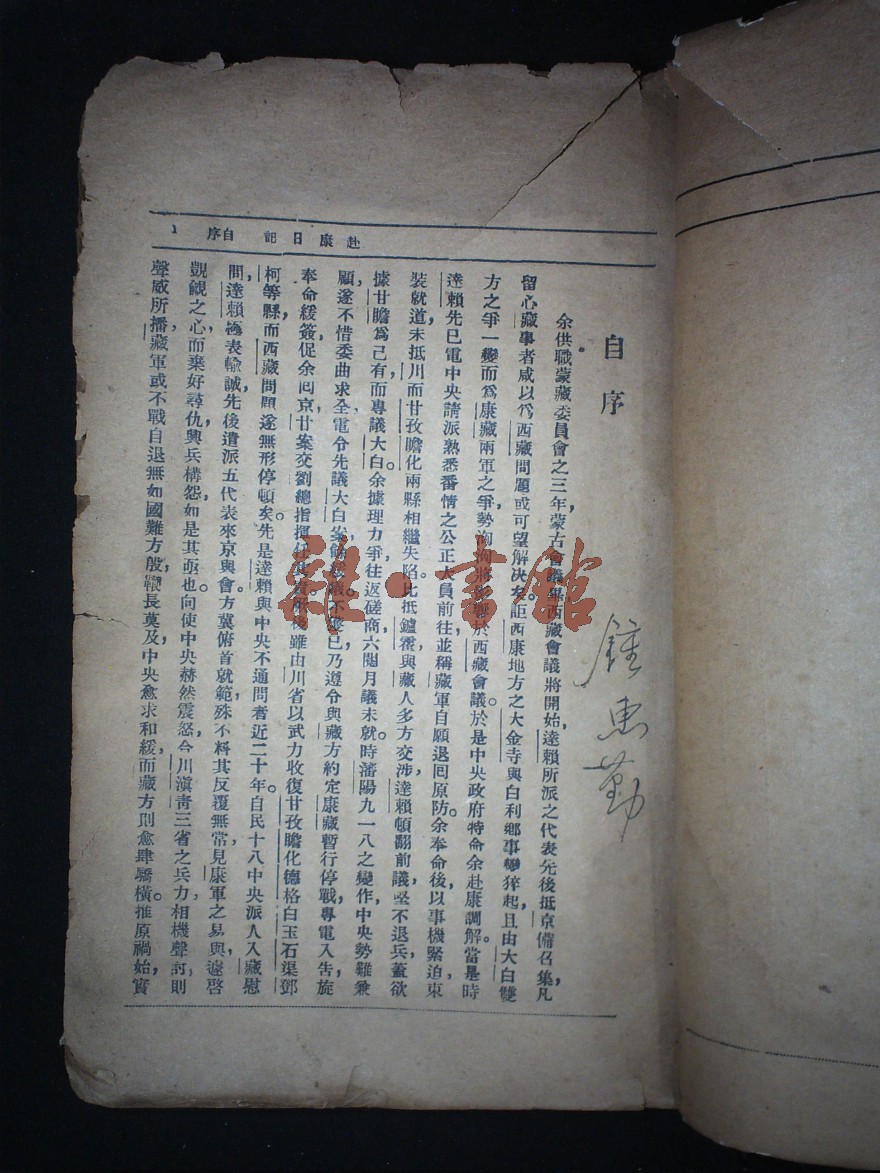 赴康日記 自序 1
自序
余供職蒙藏委員會之三年，蒙古會議畢，西藏會議將開始，達賴所派之代表先後抵京，備召集，凡
留心藏事者咸以爲西藏問題或可望解決矣。詎西康地方之大金寺與白利鄉事變猝起，且由大白雙
方之爭一變而爲康藏兩軍之爭，勢洶洶將影響於西藏會議，於是中央政府特命余赴康調解。當是時
達賴先已電中央請派熟悉番情之公正大員前往，並稱藏軍自願退回原防。余奉命後，以事機緊迫，束
裝就道，未抵川而甘孜瞻化兩縣相繼失陷，比抵鑪霍，與藏人多方交涉，達賴頓翻前議，堅不退兵，蓋欲
據甘瞻爲己有，而專議大白。余據理力爭，往返磋商，六閱月議未就，時瀋陽九一八之變作，中央勢難兼
顧，遂不惜委曲求全，電令先議大白案，餘
已，乃遵令與藏方約定康藏暫行停戰，專電入告，旋
奉命緩簽，促余回京，甘案交劉總指揮
後雖由川省以武力收復甘孜瞻化德格白玉石渠鄧
柯等縣，而西藏問題遂無形停頓矣。先是達賴與中央不通問者近二十年，自民十八中央派人入藏慰
問，達賴極表輸誠，先後遣派五代表來京與會，方冀俯首就範，殊不料其反覆無常，見康軍之易與，遽啓
覬覦之心，而棄好尋仇，興兵構怨，如是其亟也。向使中央赫然震怒，令川滇青三省之兵力，相機聲討，則
聲威所播，藏軍或不戰自退，無如國難方殷，鞭長莫及，中央愈求和緩，而藏方則愈肆驕橫。推原禍始，實
鍾惠勤
雜·書館